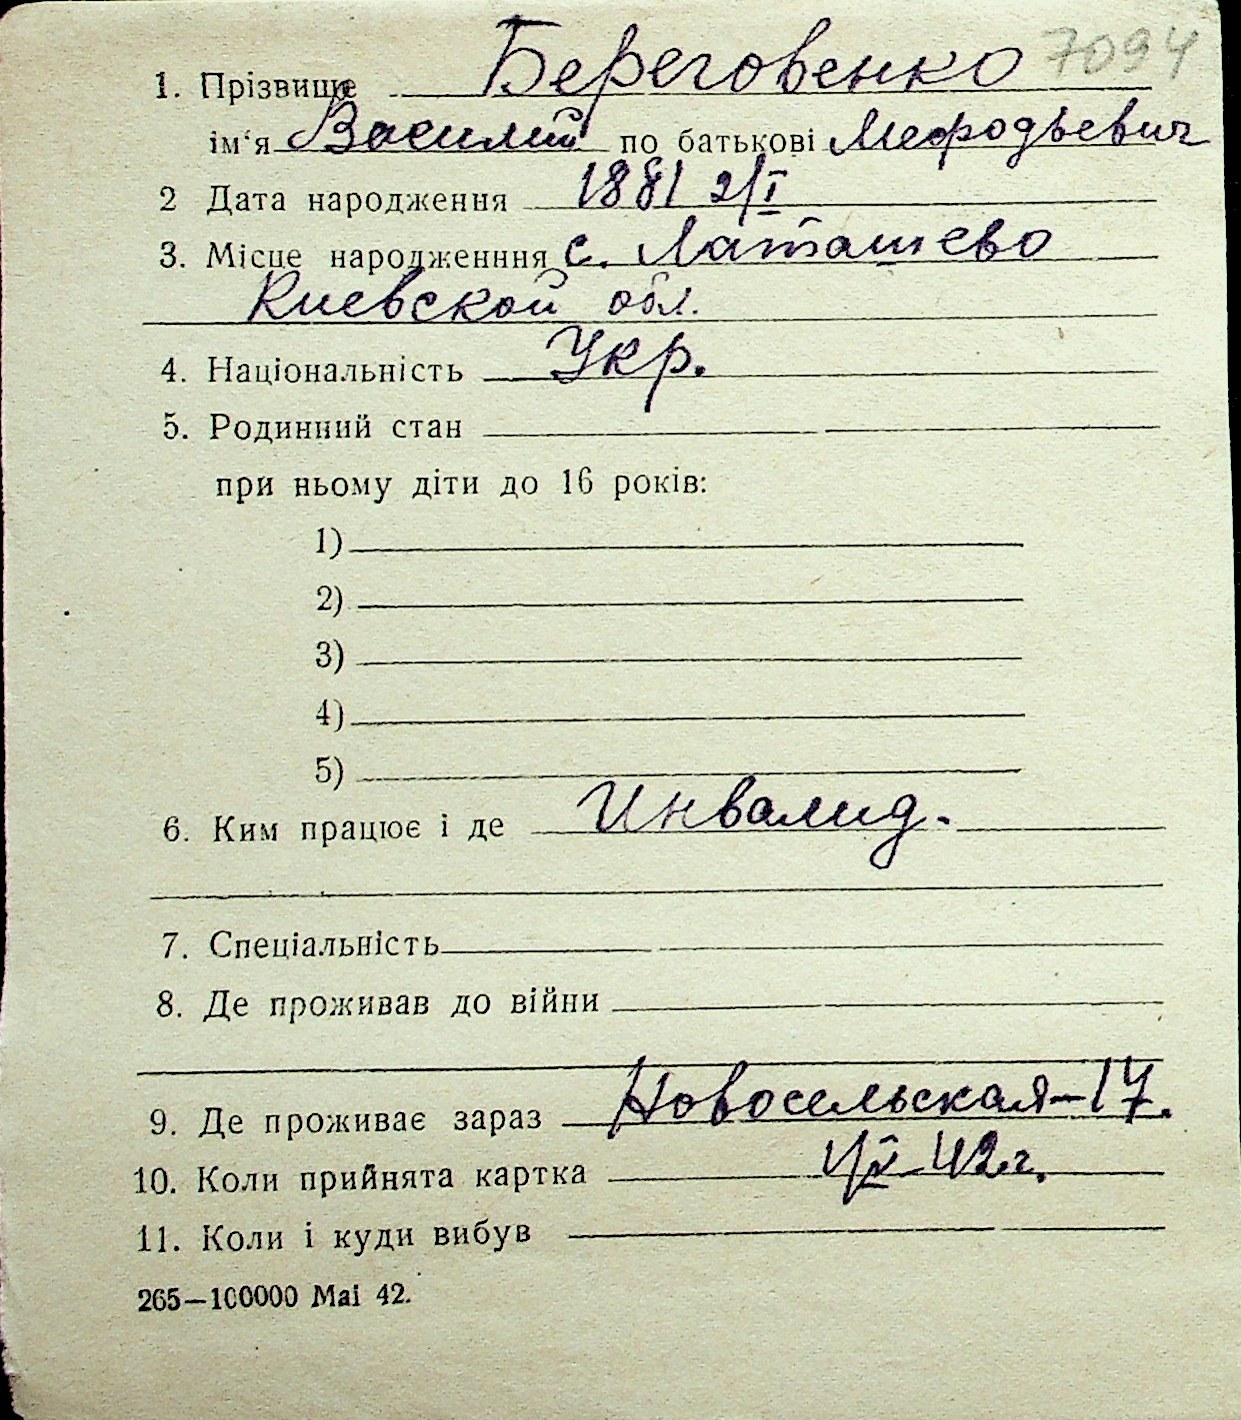 7094
1. Прізвище Береговенко
ім'я Василий по батькові Мефодьевич
2 Дата народження 1881 2/I
3. Місце народженння с. Латашево
Киевской обл.
4. Національність Укр.
5. Родинний стан
при ньому діти до 16 років:
1)
2)
3)
4)
5)
6. Ким працює і де Инвалид.
7. Спеціальність
8. Де проживав до війни
9. Де проживає зараз Новосельская-17.
10. Коли прийнята картка 42г.
11. Коли і куди вибув
265—100000 Mai 42.